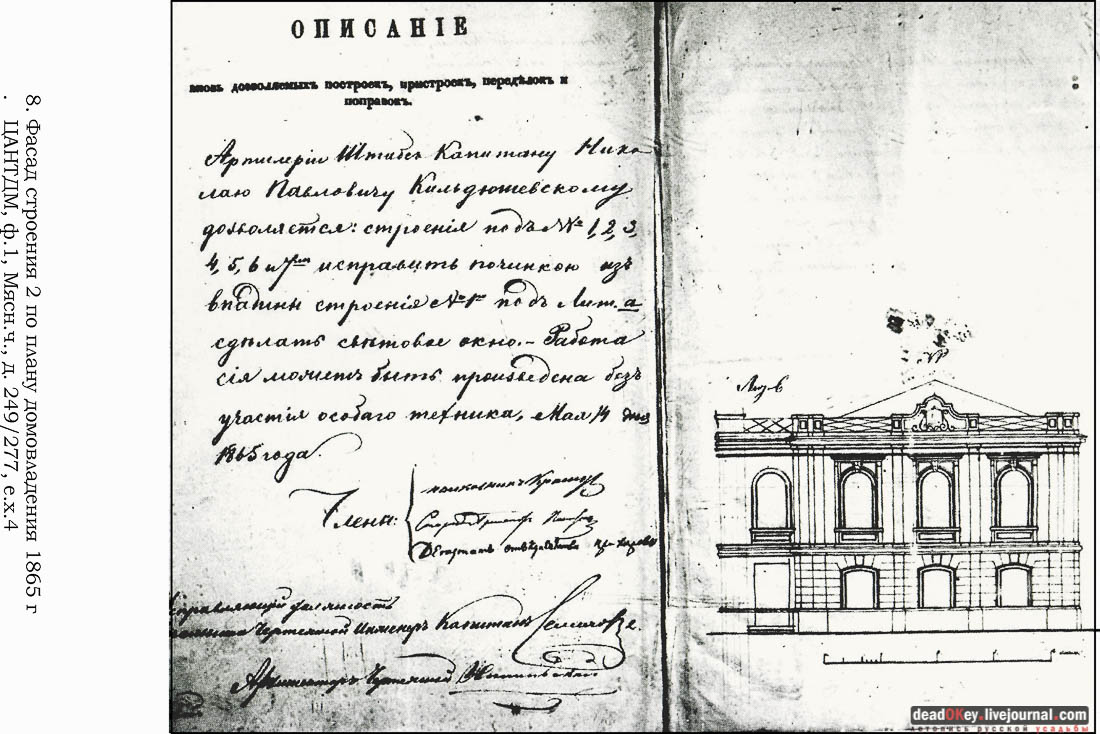 8. Фасад строения 2 по плану домовладения 1865 г
. ЦАНТДМ, ф.1, Мясн.ч., д. 249/277, е.х.4
ОПИСАНІЕ
вновь дозволяемыхъ построекъ, пристроекъ, передѣлокъ и
поправокъ.
Артилеріи Штабсъ Капитану Нико
лаю Павловичу Кильдюшевскому
дозволяется: строенія подъ №№ 1, 2, 3,
4, 5, 6 и 7мъ исправить починкою изъ
впадины строенія № 1го подъ Лит. а
сдѣлать свѣтовое окно. – Работа
сія можетъ быть произведена безъ
участія особаго техника, Мая 14 дня
1865 года.
Члены:
Управляющій должность
Чертежной Инженеръ Капитанъ
Архитекторъ Чертежной
deadOKey.livejournal.com
летопись русской усадьбы